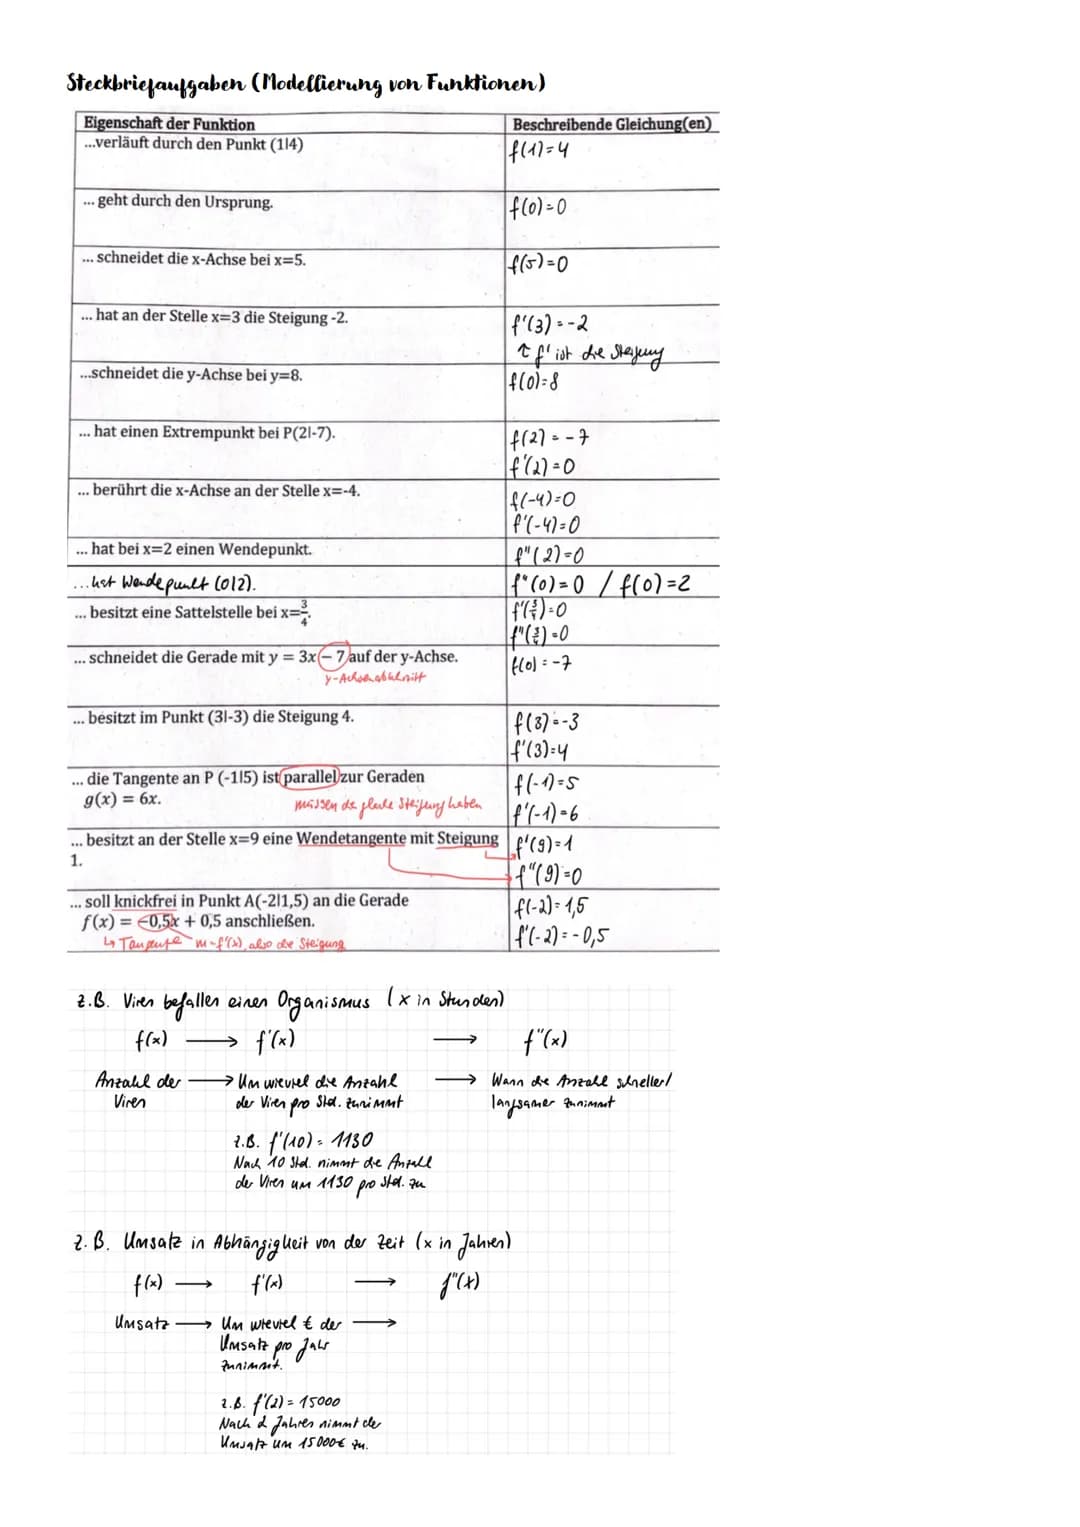 Steckbriefaufgaben (Modellierung von Funktionen)
Eigenschaft der Funktion	Beschreibende Gleichung(en)
...verläuft durch den Punkt (1|4)	f(1)=4
... geht durch den Ursprung.	f(0)=0
... schneidet die x-Achse bei x=5.	f(5)=0
... hat an der Stelle x=3 die Steigung -2.	f'(3)=-2
↑ f' ist die Steigung
...schneidet die y-Achse bei y=8.	f(0)=8
... hat einen Extrempunkt bei P(2|-7).	f(2)=-7
f'(2)=0
... berührt die x-Achse an der Stelle x=-4.	f(-4)=0
f'(-4)=0
... hat bei x=2 einen Wendepunkt.	f"(2)=0
...hat Wendepunkt (0|2).	f"(0)=0 / f(0)=2
... besitzt eine Sattelstelle bei x=3/4.	f'(3/4)=0
f"(3/4)=0
... schneidet die Gerade mit y = 3x – 7 auf der y-Achse.	f(0)=-7
y-Achsenabschnitt
... besitzt im Punkt (3|-3) die Steigung 4.	f(3)=-3
f'(3)=4
... die Tangente an P (-1|5) ist parallel zur Geraden	f(-1)=5
g(x) = 6x.	müssen die gleiche Steigung haben	f'(-1)=6
... besitzt an der Stelle x=9 eine Wendetangente mit Steigung	f'(9)=1
1.	f"(9)=0
... soll knickfrei in Punkt A(-2|1,5) an die Gerade	f(-2)=1,5
f(x) = −0,5x + 0,5 anschließen.	f'(-2)=-0,5
↳ Tangente m=f'(x), also die Steigung
z.B. Viren befallen einen Organismus (x in Stunden)
f(x) → f'(x) → f"(x)
Anzahl der → Um wieviel die Anzahl → Wann die Anzahl schneller/
Viren	der Viren pro Std. zunimmt	langsamer zunimmt
z.B. f'(10) = 1130
Nach 10 Std. nimmt die Anzahl
der Viren um 1130 pro Std. zu
z.B. Umsatz in Abhängigkeit von der Zeit (x in Jahren)
f(x) → f'(x) → f"(x)
Umsatz → Um wieviel € der →
Umsatz pro Jahr
zunimmt.
z.B. f'(2) = 15000
Nach 2 Jahren nimmt der
Umsatz um 15000€ zu.